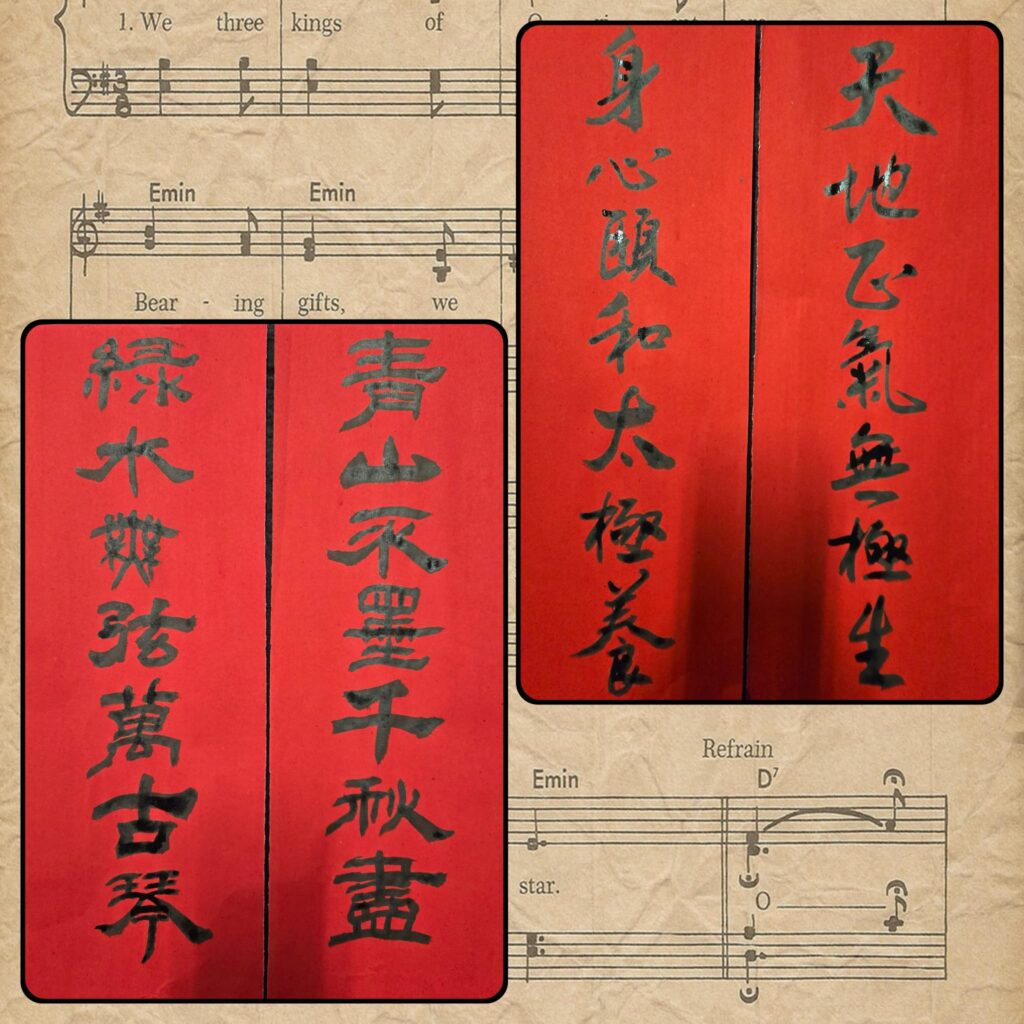 1. We three kings of
3
8
Emin Emin
Bear - ing gifts, we
天地正氣無極生
身心頤和太極養
青山不墨千秋畫
綠水無弦萬古琴
Refrain
Emin D7
star. O